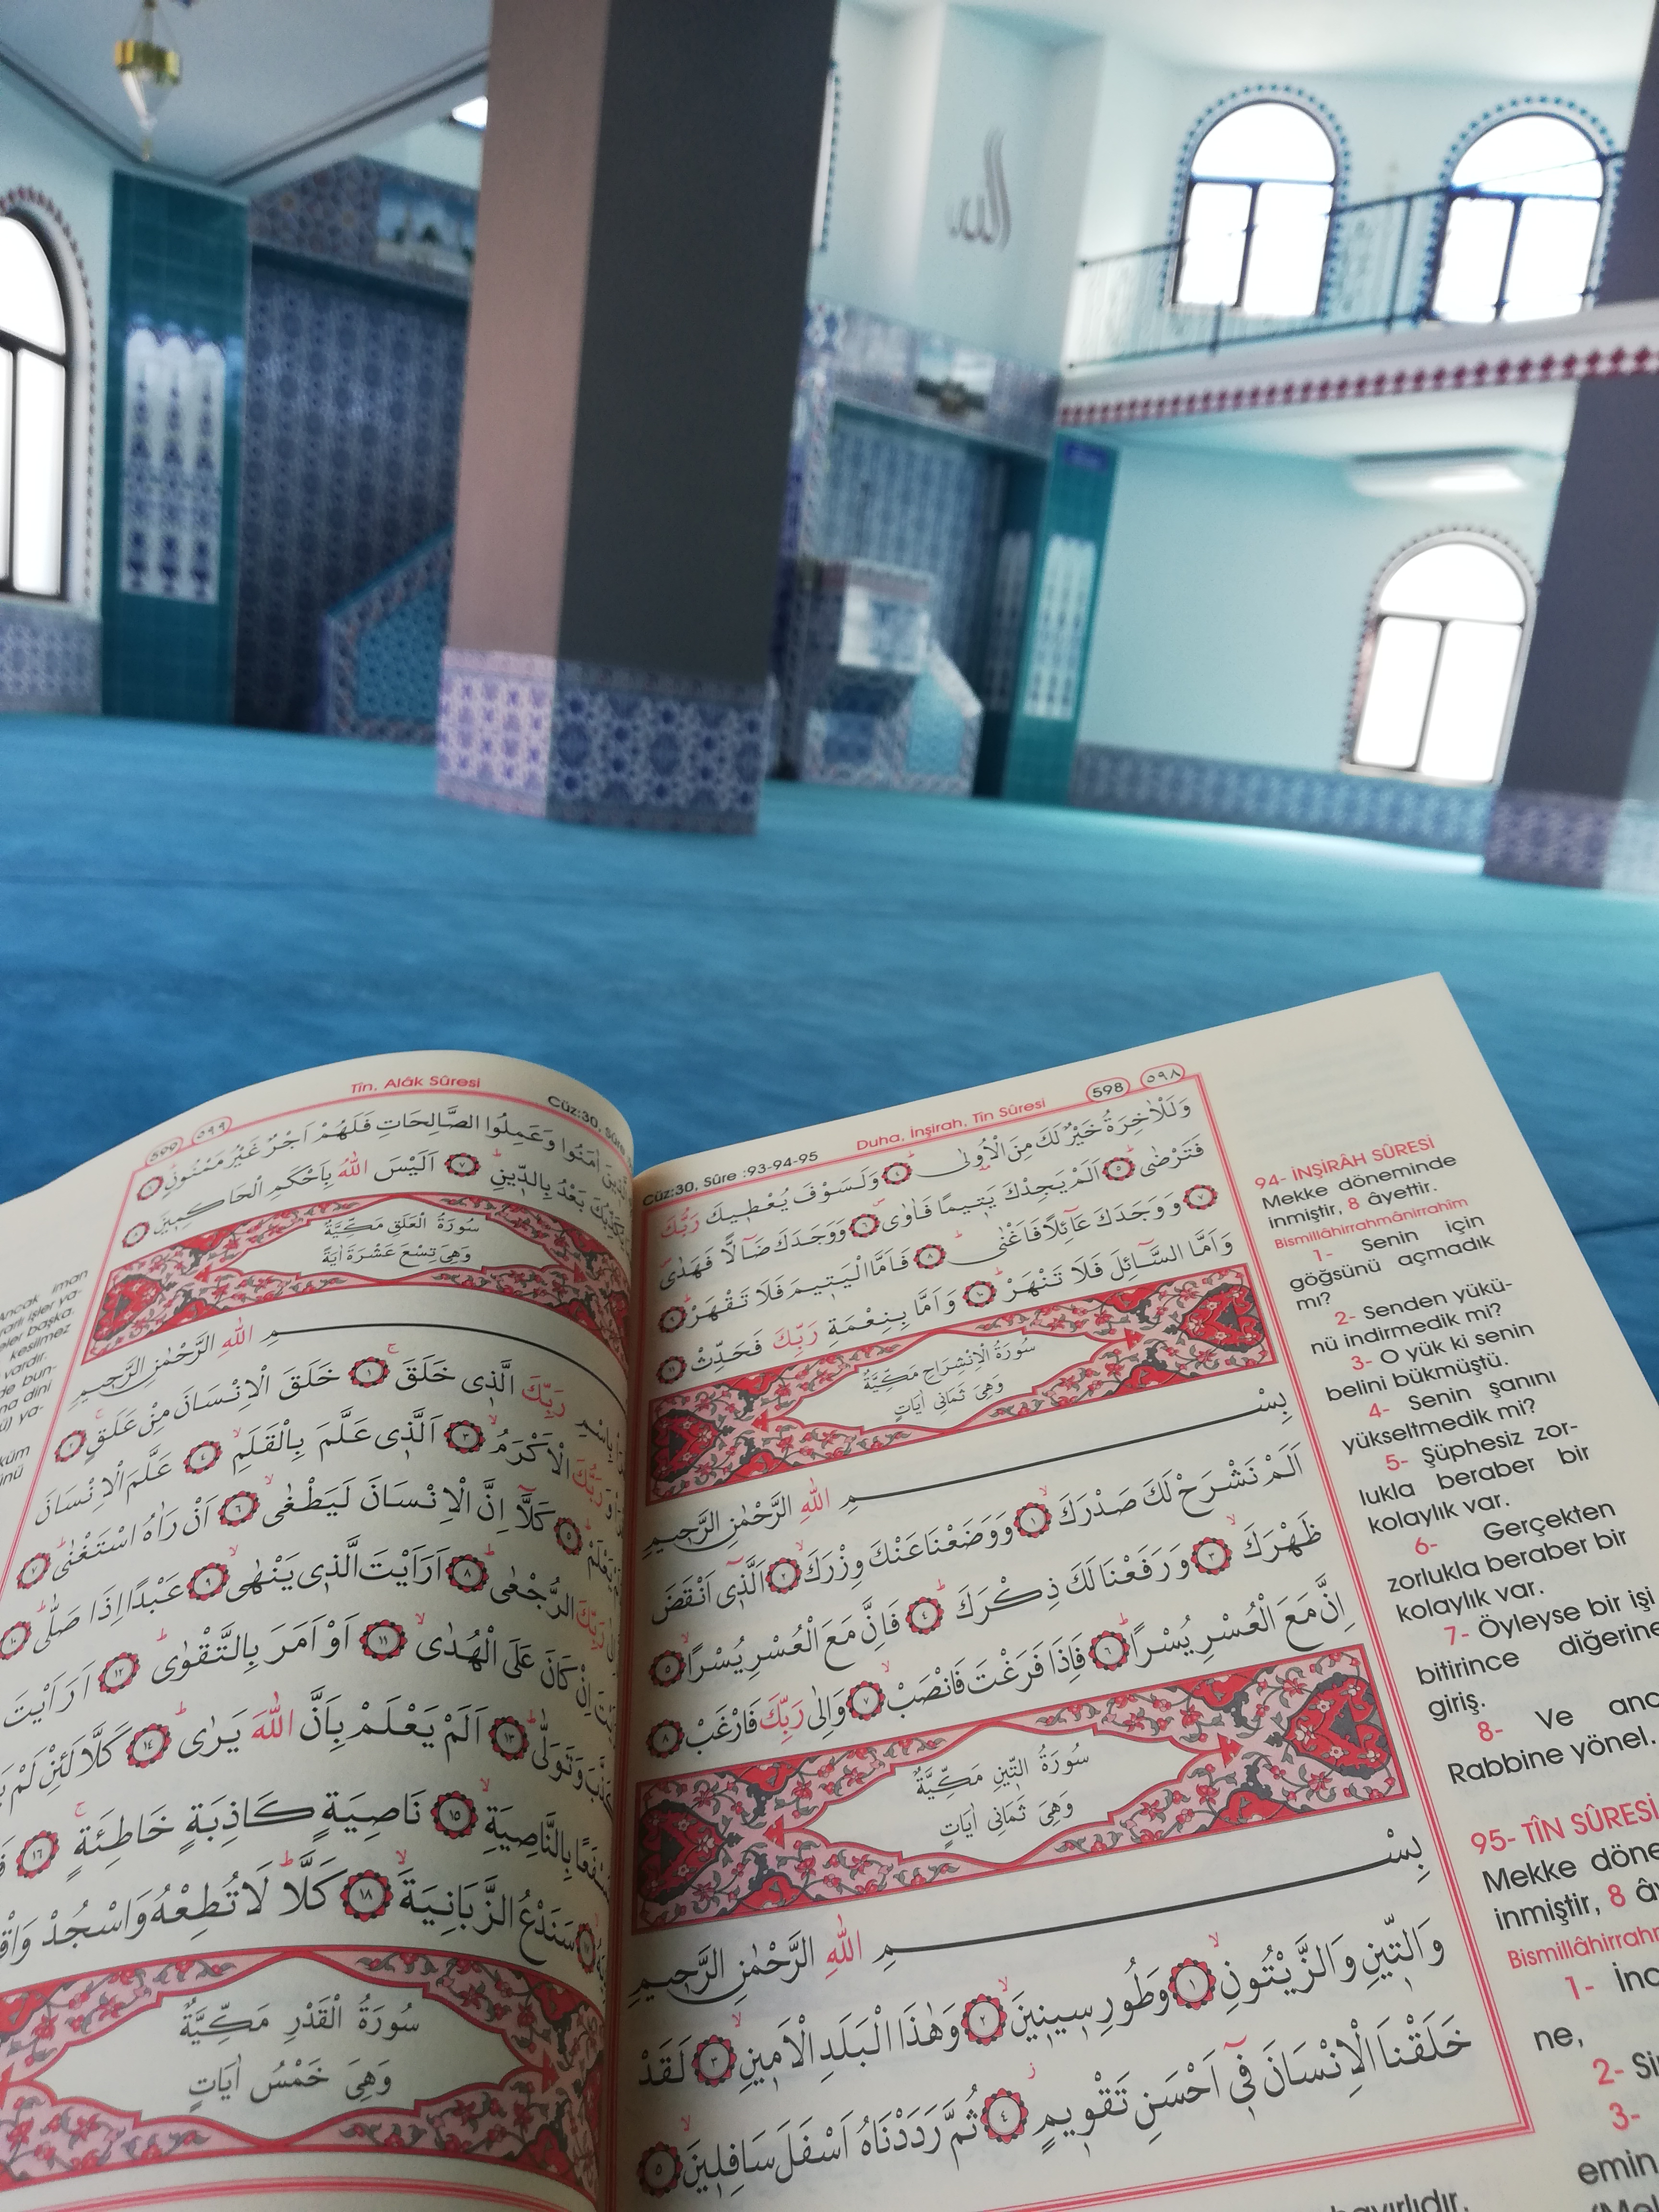 الله
598 ٥٩٨
Duha, İnşirah, Tîn Sûresi
Cüz:30, Sûre :93-94-95
وَلَلْاٰخِرَةُ خَيْرٌ لَكَ مِنَ الْاُو۫لٰى ٤ وَلَسَوْفَ يُعْط۪يكَ رَبُّكَ
فَتَرْضٰى ٥ اَلَمْ يَجِدْكَ يَت۪يمًا فَاٰوٰى ٦ وَوَجَدَكَ ضَٓالًّا فَهَدٰى
٧ وَوَجَدَكَ عَٓائِلًا فَاَغْنٰى ٨ فَاَمَّا الْيَت۪يمَ فَلَا تَقْهَرْ ٩
وَاَمَّا السَّٓائِلَ فَلَا تَنْهَرْ ١٠ وَاَمَّا بِنِعْمَةِ رَبِّكَ فَحَدِّثْ ١١
سُورَةُ الْاِنْشِرَاحِ مَكِّيَّةٌ
وَهِيَ ثَمَانِي اٰيَاتٍ
بِسْمِ اللّٰهِ الرَّحْمٰنِ الرَّح۪يمِ
اَلَمْ نَشْرَحْ لَكَ صَدْرَكَ ١ وَوَضَعْنَا عَنْكَ وِزْرَكَ ٢ اَلَّذ۪ٓي اَنْقَضَ
ظَهْرَكَ ٣ وَرَفَعْنَا لَكَ ذِكْرَكَ ٤ فَاِنَّ مَعَ الْعُسْرِ يُسْرًا ٥
اِنَّ مَعَ الْعُسْرِ يُسْرًا ٦ فَاِذَا فَرَغْتَ فَانْصَبْ ٧ وَاِلٰى رَبِّكَ فَارْغَبْ ٨
سُورَةُ التِّينِ مَكِّيَّةٌ
وَهِيَ ثَمَانِي اٰيَاتٍ
بِسْمِ اللّٰهِ الرَّحْمٰنِ الرَّح۪يمِ
وَالتّ۪ينِ وَالزَّيْتُونِ ١ وَطُورِ س۪ين۪ينَ ٢ وَهٰذَا الْبَلَدِ الْاَم۪ينِ ٣ لَقَدْ
خَلَقْنَا الْاِنْسَانَ ف۪ٓي اَحْسَنِ تَقْو۪يمٍ ٤ ثُمَّ رَدَدْنَاهُ اَسْفَلَ سَافِل۪ينَ ٥
94- İNŞİRÂH SÛRESİ
Mekke döneminde
inmiştir, 8 âyettir.
Bismillâhirrahmânirrahîm
1- Senin için
göğsünü açmadık
mı?
2- Senden yükü-
nü indirmedik mi?
3- O yük ki senin
belini bükmüştü.
4- Senin şanını
yükseltmedik mi?
5- Şüphesiz zor-
lukla beraber bir
kolaylık var.
6- Gerçekten
zorlukla beraber bir
kolaylık var.
7- Öyleyse bir işi
bitirince diğerine
giriş.
8- Ve
Rabbine yönel.
95- TÎN SÛRESİ
Mekke
inmiştir, 8
1-
ne,
2-
3-
emin
599 ٥٩٩
Tîn, Alâk Sûresi
Cüz:30,
اٰمَنُوا وَعَمِلُوا الصَّالِحَاتِ فَلَهُمْ اَجْرٌ غَيْرُ مَمْنُونٍ ٦
بَعْدُ بِالدّ۪ينِ ٧ اَلَيْسَ اللّٰهُ بِاَحْكَمِ الْحَاكِم۪ينَ ٨
سُورَةُ الْعَلَقِ مَكِّيَّةٌ
وَهِيَ تِسْعَ عَشْرَةَ اٰيَةً
مِ اللّٰهِ الرَّحْمٰنِ الرَّح۪يمِ
بِاسْمِ رَبِّكَ الَّذ۪ي خَلَقَ ١ خَلَقَ الْاِنْسَانَ مِنْ عَلَقٍ ٢
وَرَبُّكَ الْاَكْرَمُ ٣ اَلَّذ۪ي عَلَّمَ بِالْقَلَمِ ٤ عَلَّمَ الْاِنْسَانَ
يَعْلَمْ ٥ كَلَّٓا اِنَّ الْاِنْسَانَ لَيَطْغٰى ٦ اَنْ رَاٰهُ اسْتَغْنٰى ٧
رَبِّكَ الرُّجْعٰى ٨ اَرَاَيْتَ الَّذ۪ي يَنْهٰى ٩ عَبْدًا اِذَا صَلّٰى ١٠
اِنْ كَانَ عَلَى الْهُدٰى ١١ اَوْ اَمَرَ بِالتَّقْوٰى ١٢ اَرَاَيْتَ
كَذَّبَ وَتَوَلّٰى ١٣ اَلَمْ يَعْلَمْ بِاَنَّ اللّٰهَ يَرٰى ١٤ كَلَّا لَئِنْ لَمْ
بِالنَّاصِيَةِ ١٥ نَاصِيَةٍ كَاذِبَةٍ خَاطِئَةٍ ١٦
سَنَدْعُ الزَّبَانِيَةَ ١٨ كَلَّا لَا تُطِعْهُ وَاسْجُدْ
سُورَةُ الْقَدْرِ مَكِّيَّةٌ
وَهِيَ خَمْسُ اٰيَاتٍ